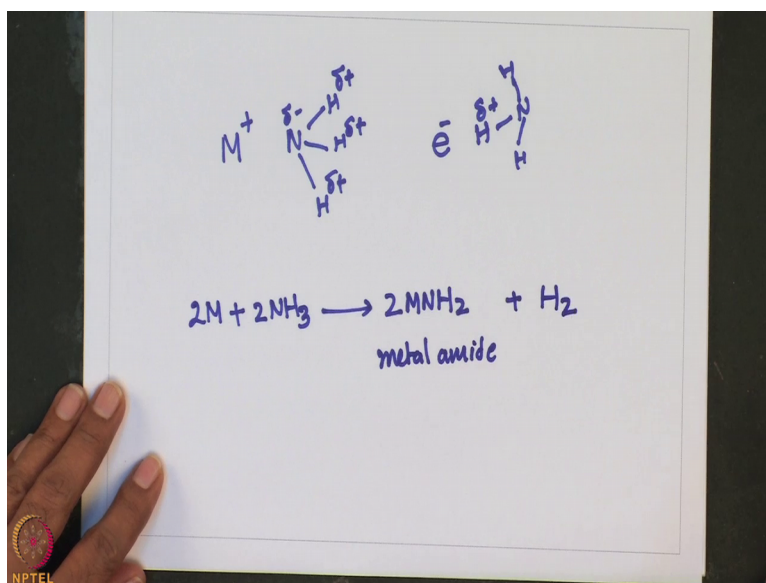 M⁺ δ- N H δ+ H δ+ H δ+
e⁻ δ+ H N H H
2M + 2NH₃ ⟶ 2MNH₂ + H₂
metal amide
NPTEL